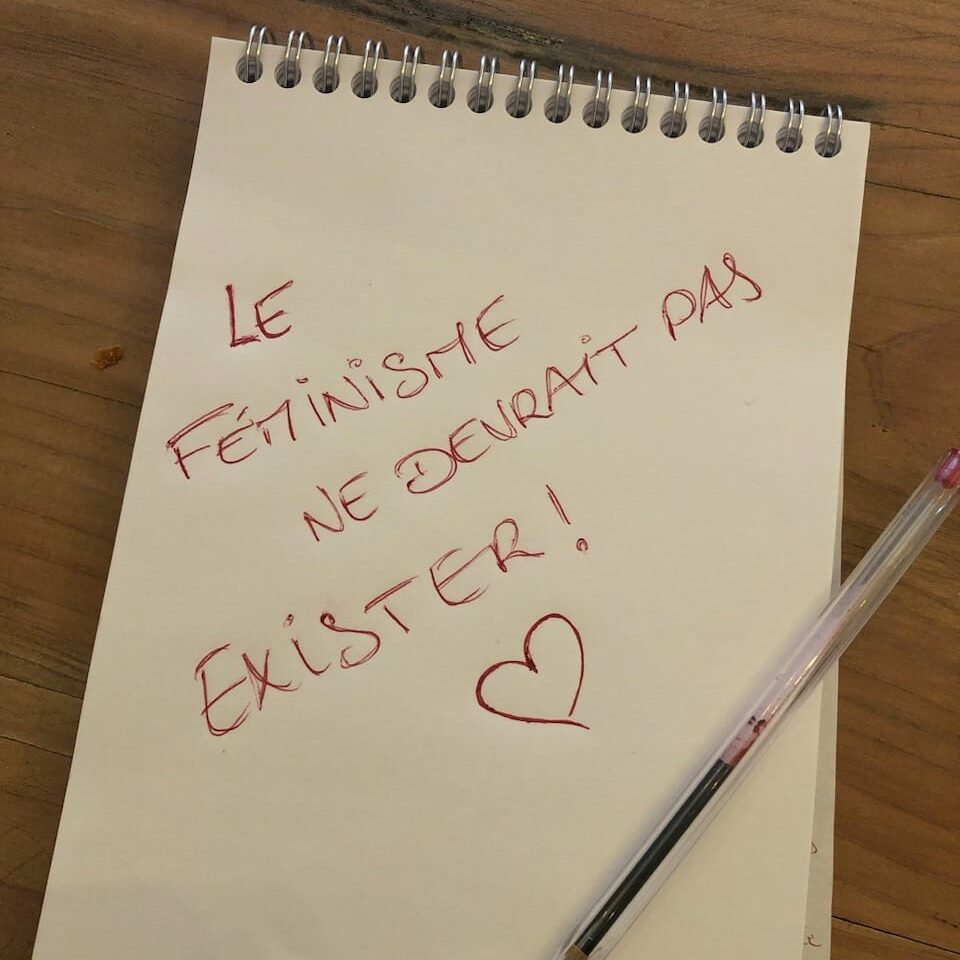 LE
FÉMINISME
NE DEVRAIT PAS
EXISTER !